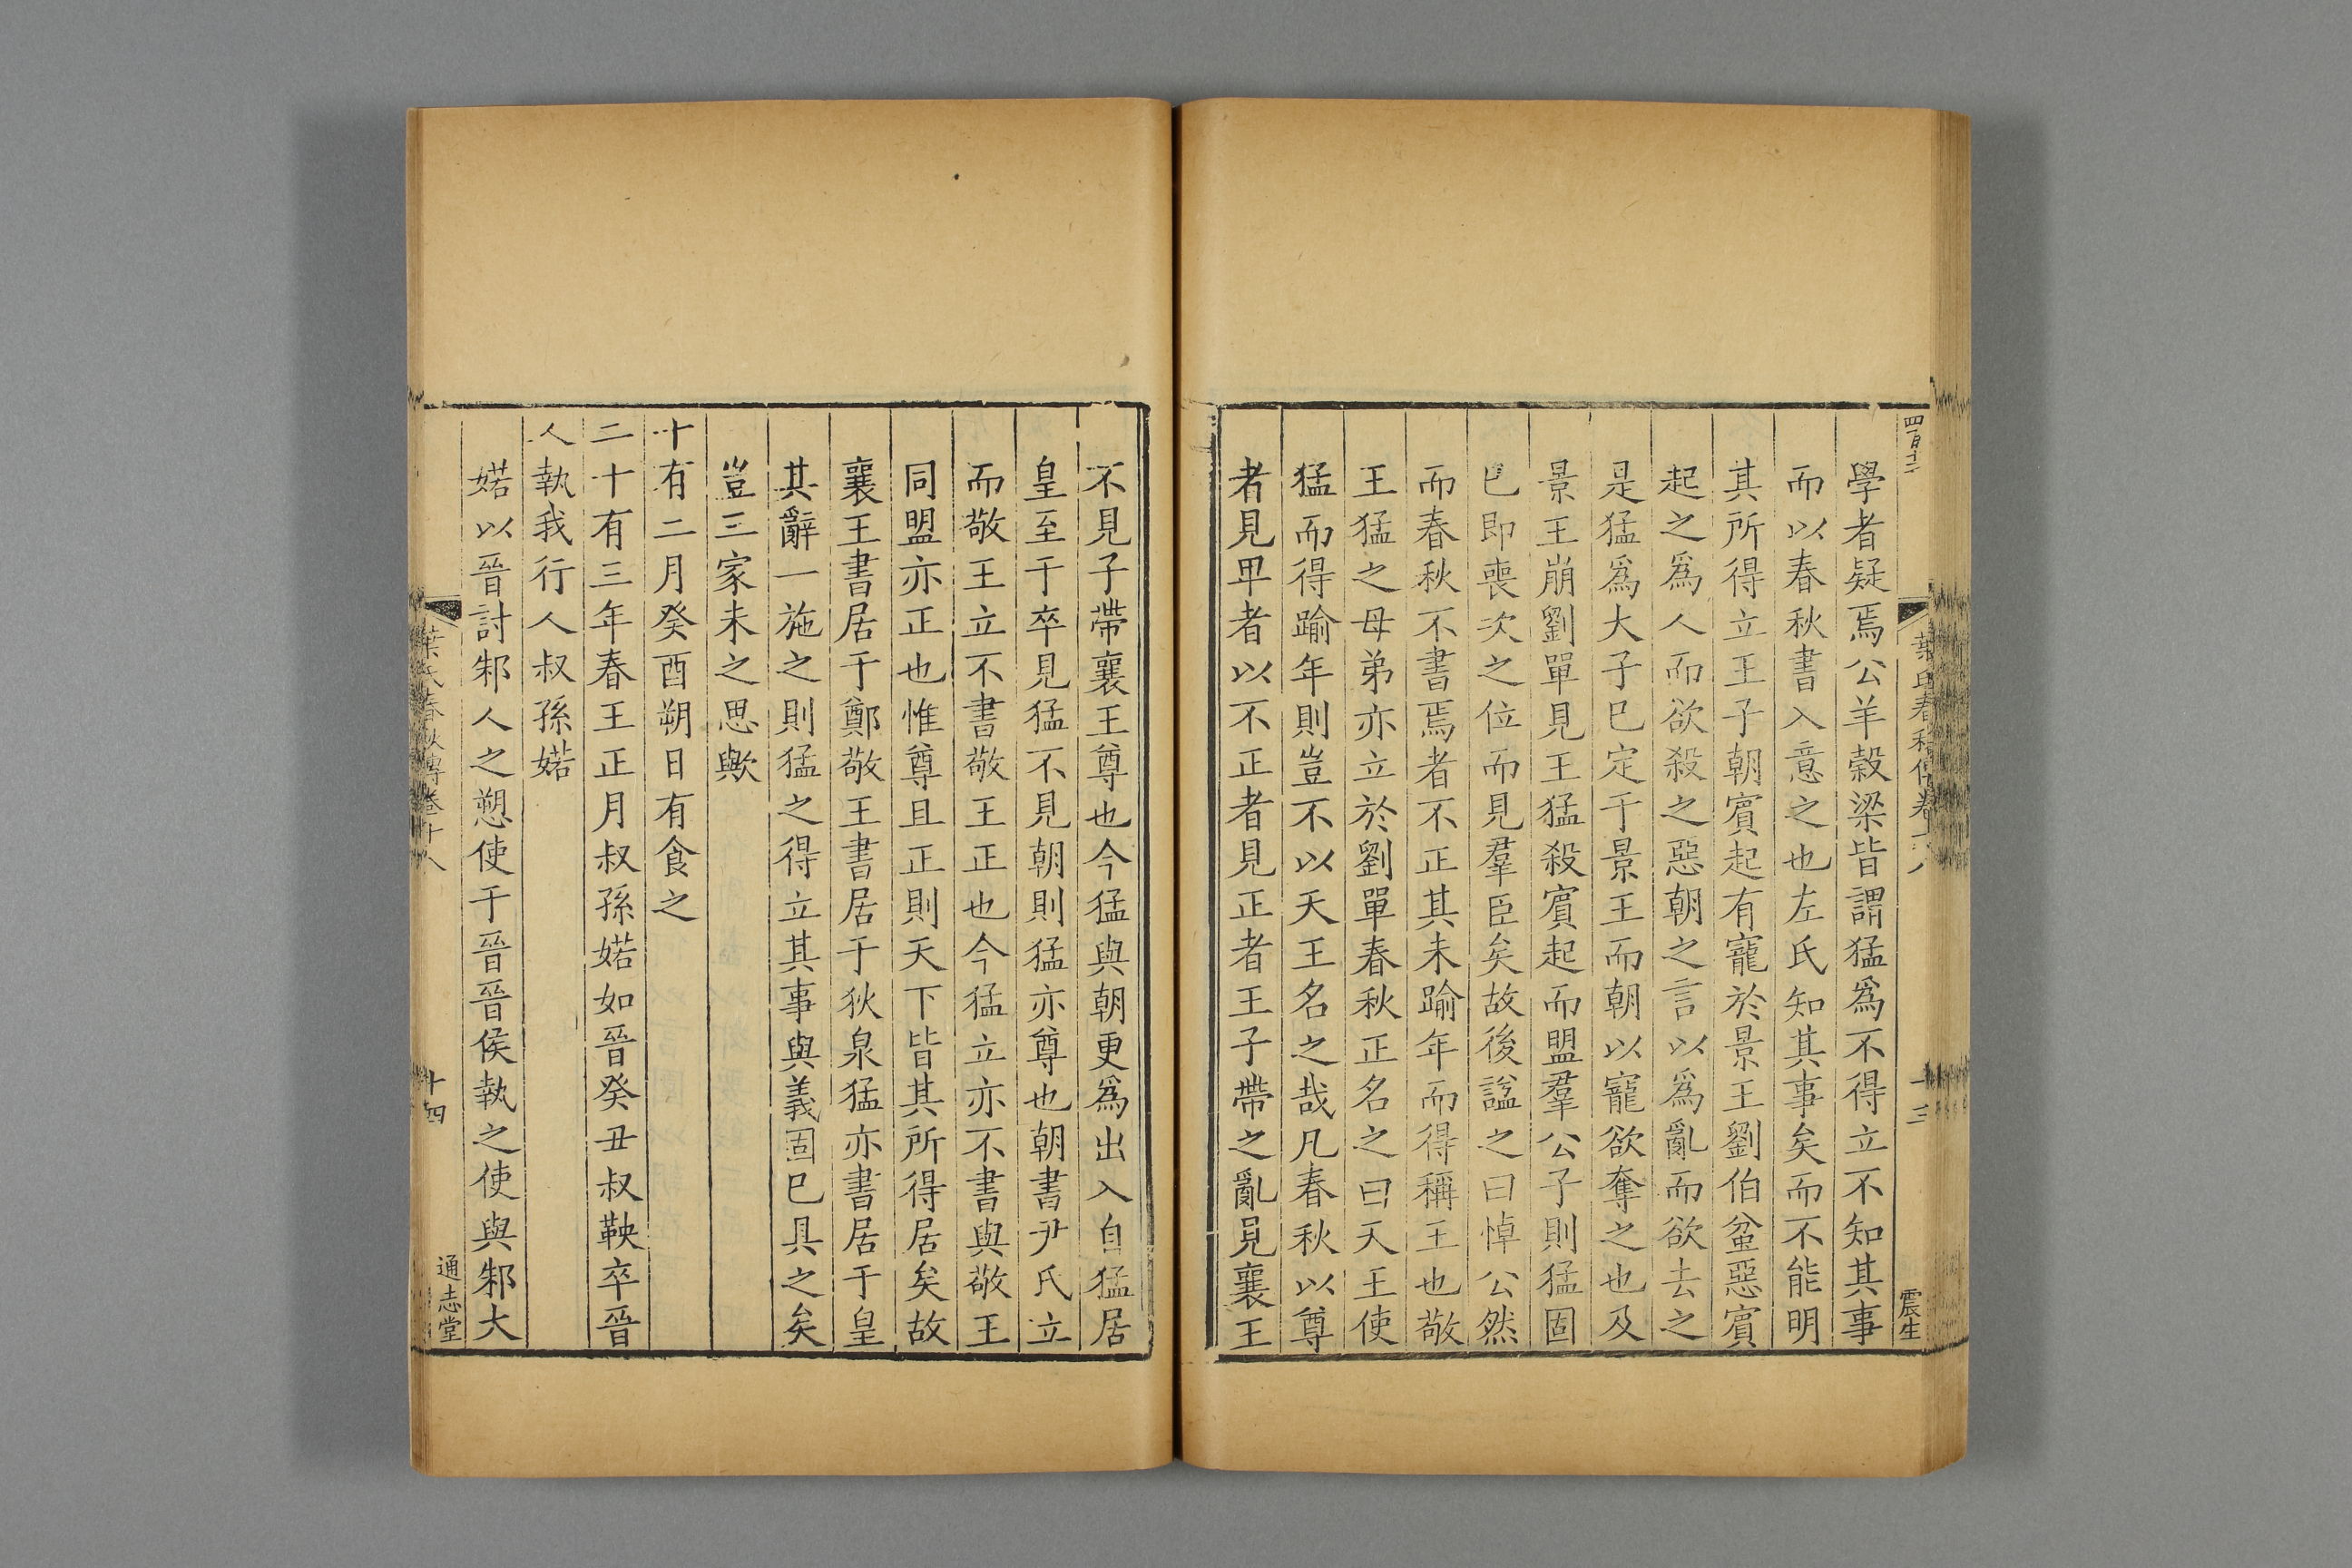 四百十二
葉氏春秋傳卷十八
十三
震生
學者疑焉公羊穀梁皆謂猛爲不得立不知其事
而以春秋書入意之也左氏知其事矣而不能明
其所得立王子朝賔起有寵於景王劉伯蚠惡賔
起之爲人而欲殺之惡朝之言以爲亂而欲去之
是猛爲大子巳定于景王而朝以寵欲奪之也及
景王崩劉單見王猛殺賔起而盟羣公子則猛固
巳即喪次之位而見羣臣矣故後諡之曰悼公然
而春秋不書焉者不正其未踰年而得稱王也敬
王猛之母弟亦立於劉單春秋正名之曰天王使
猛而得踰年則豈不以天王名之哉凡春秋以尊
者見甲者以不正者見正者王子帶之亂見襄王
不見子帶襄王尊也今猛與朝更爲出入自猛居
皇至于卒見猛不見朝則猛亦尊也朝書尹氏立
而敬王立不書敬王正也今猛立亦不書與敬王
同盟亦正也惟尊且正則天下皆其所得居矣故
襄王書居于鄭敬王書居于狄泉猛亦書居于皇
其辭一施之則猛之得立其事與義固巳具之矣
豈三家未之思歟
十有二月癸酉朔日有食之
二十有三年春王正月叔孫婼如晉癸丑叔鞅卒晉
人執我行人叔孫婼
婼以晉討邾人之愬使于晉晉侯執之使與邾大
葉氏春秋傳卷十八
十四
通志堂